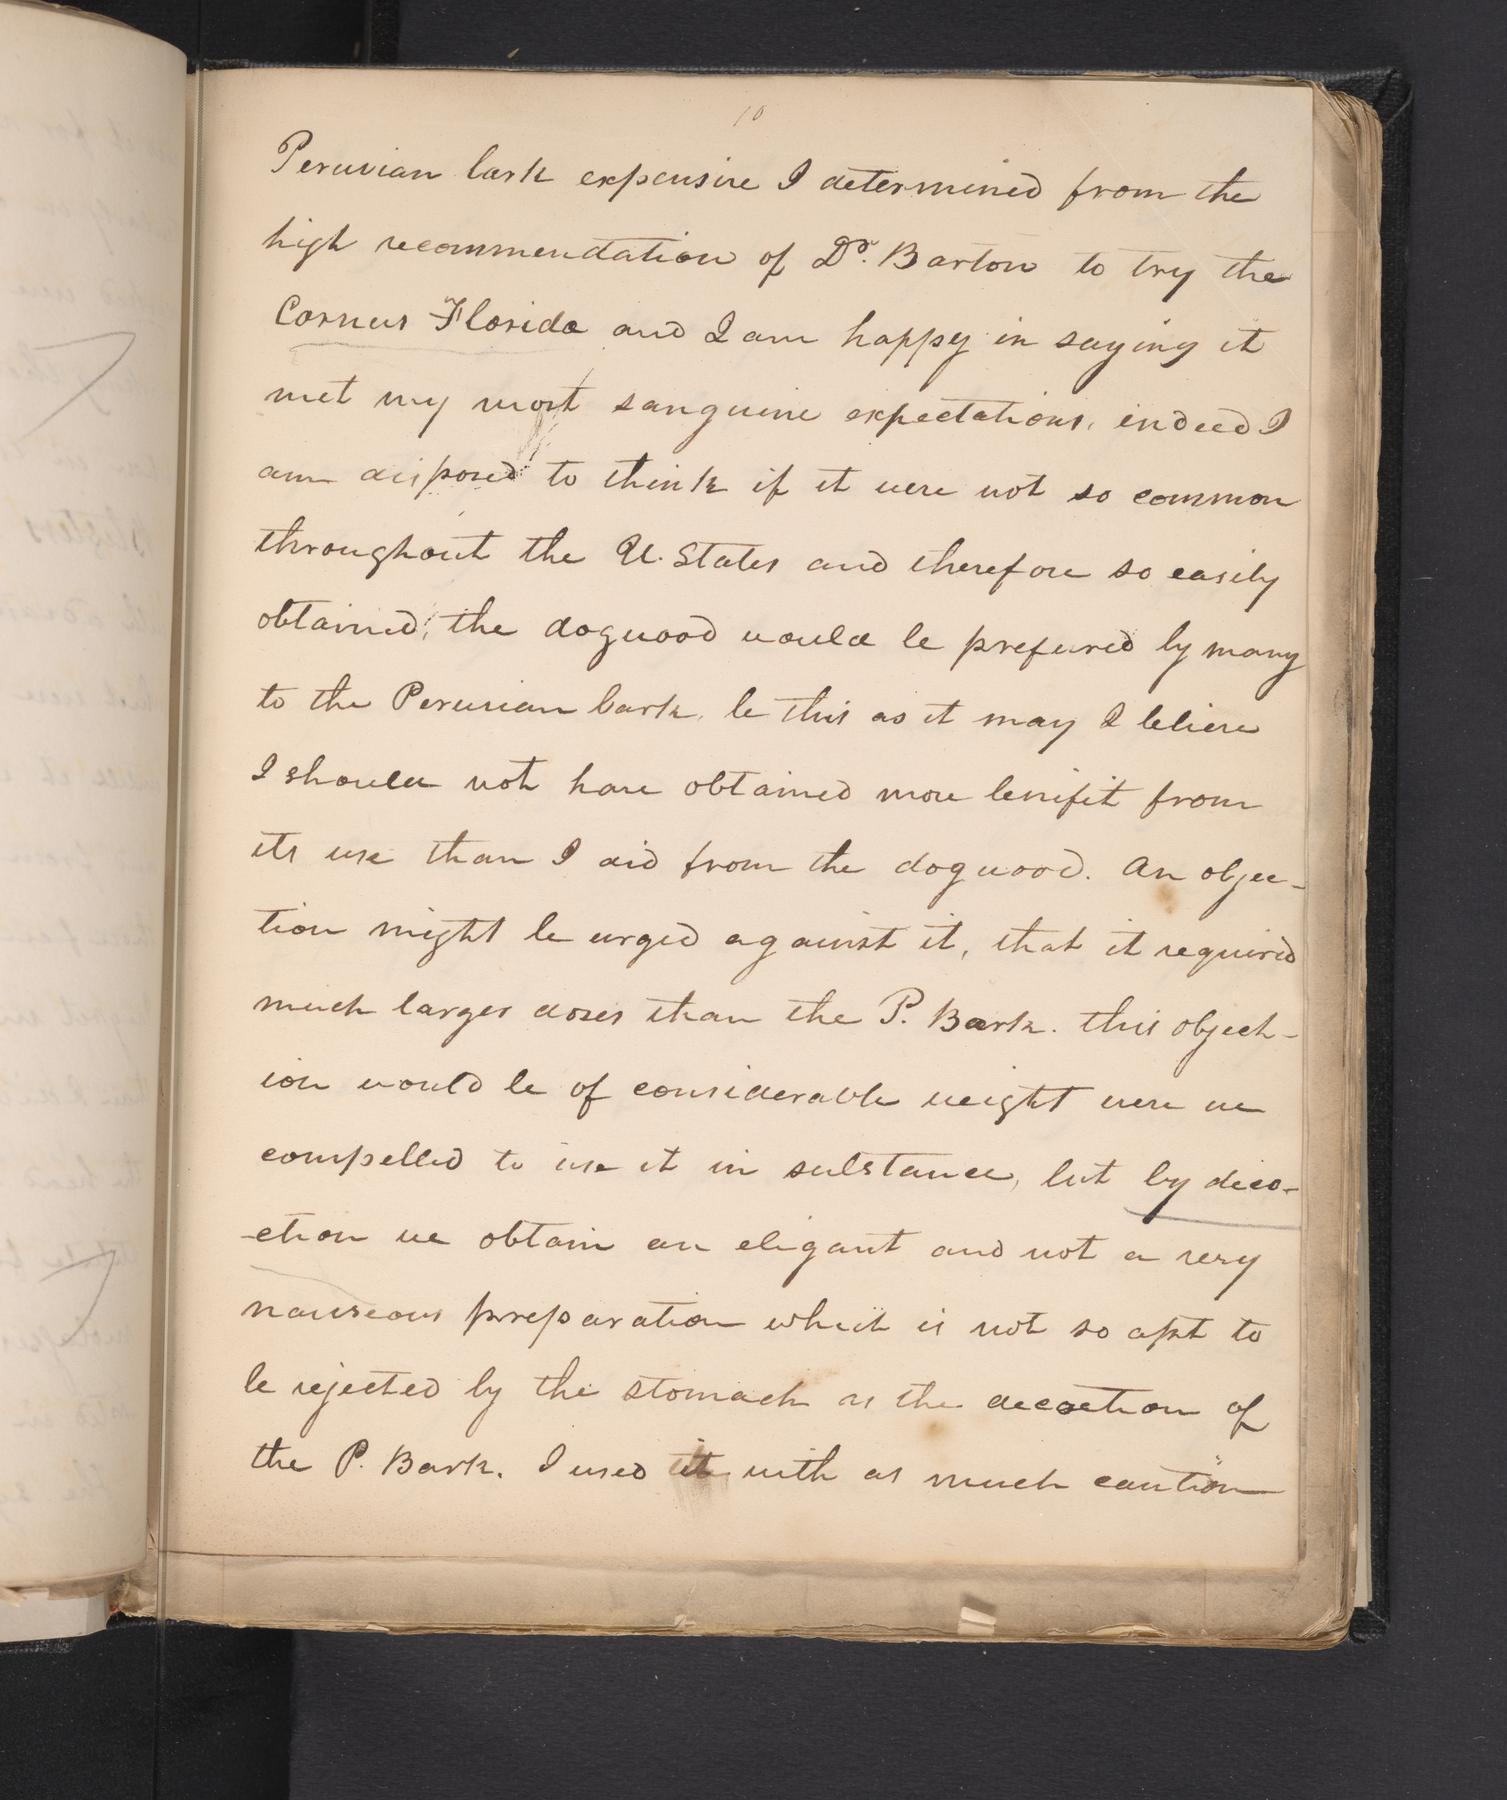 10
Peruvian bark expensive I determined from the
high recommendation of Dr. Barton to try the
Cornus Florida and I am happy in saying it
met my most sanguine expectations, indeed I
am disposed to think if it were not so common
throughout the U. States and therefore so easily
obtained, the dogwood would be prefured by many
to the Peruvian bark, be this as it may I believe
I should not have obtained more benifit from
its use than I did from the dogwood. An objec-
tion might be urged against it, that it required
much larger doses than the P. Bark. this object-
ion would be of considerable weight were we
compelled to use it in substance, but by deco-
-ction we obtain an elegant and not a very
nauseous preparation which is not so apt to
be rejected by the stomach as the decoction of
the P. Bark. I used it with as much caution